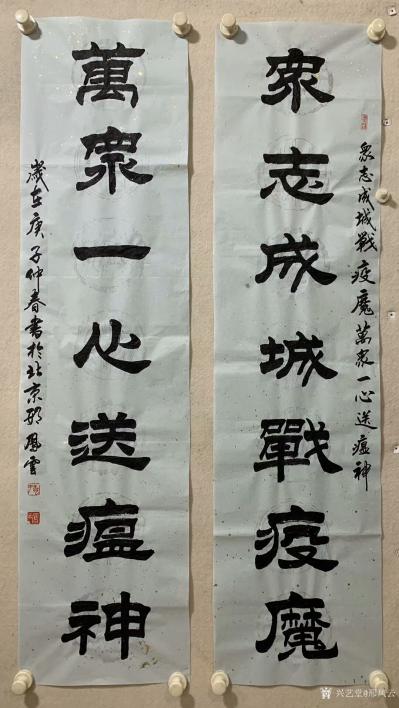 眾志成城戰疫魔
眾志成城戰疫魔萬眾一心送瘟神
萬眾一心送瘟神
歲在庚子仲春書於北京邢風雲
兴艺堂@邢风云